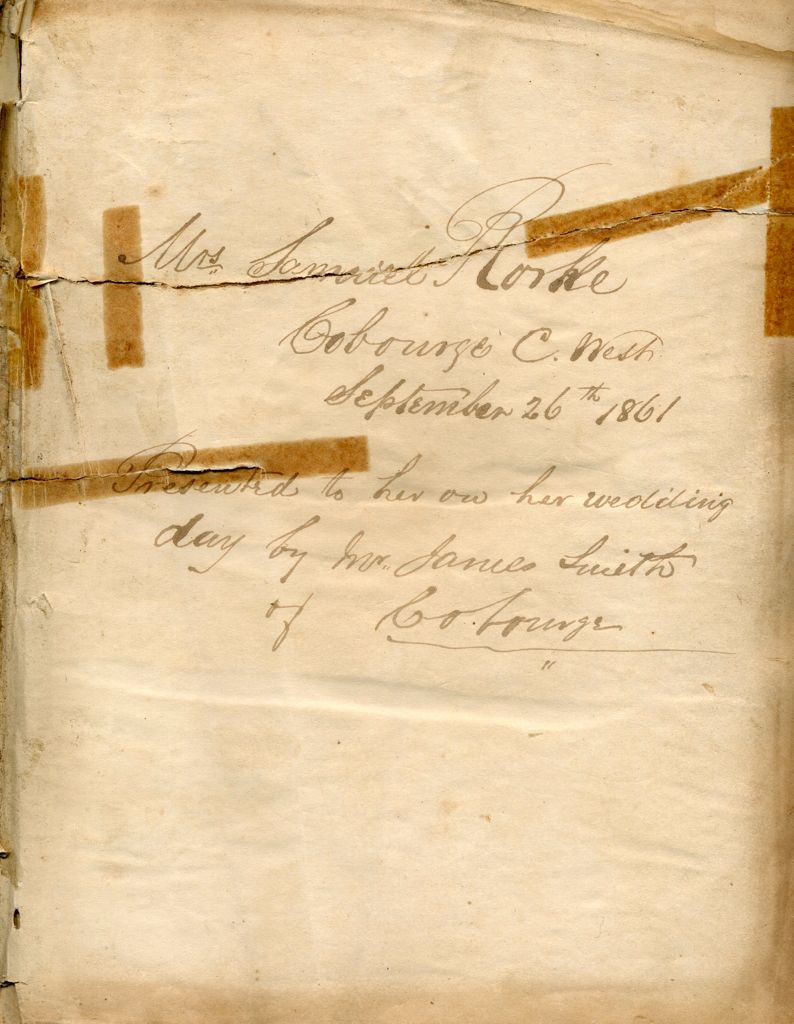 Mrs Samuell Rorke
Cobourge C. West
September 26th 1861
Presented to her on her wedding
day by Mr. James Smith
of Cobourge